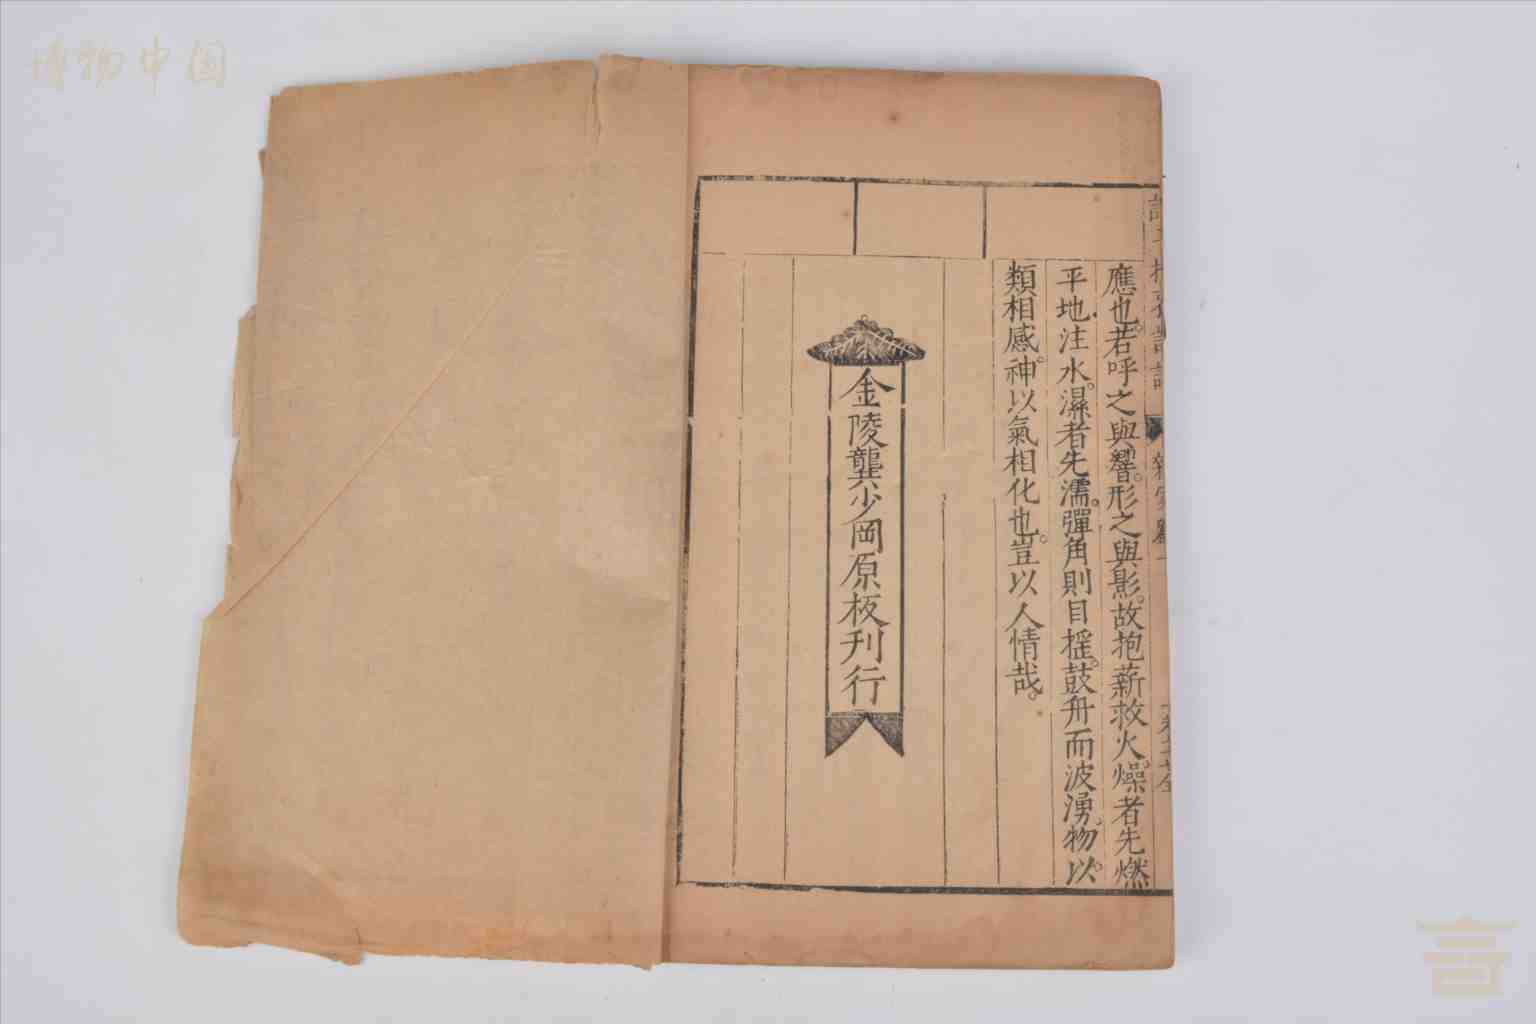 博物中国
應也。若呼之與響。形之與影。故抱薪救火。燥者先燃
平地注水。濕者先濡。彈角則目搖。鼓舟而波湧。物以
類相感。神以氣相化也。豈以人情哉。
金陵龔少岡原板刊行